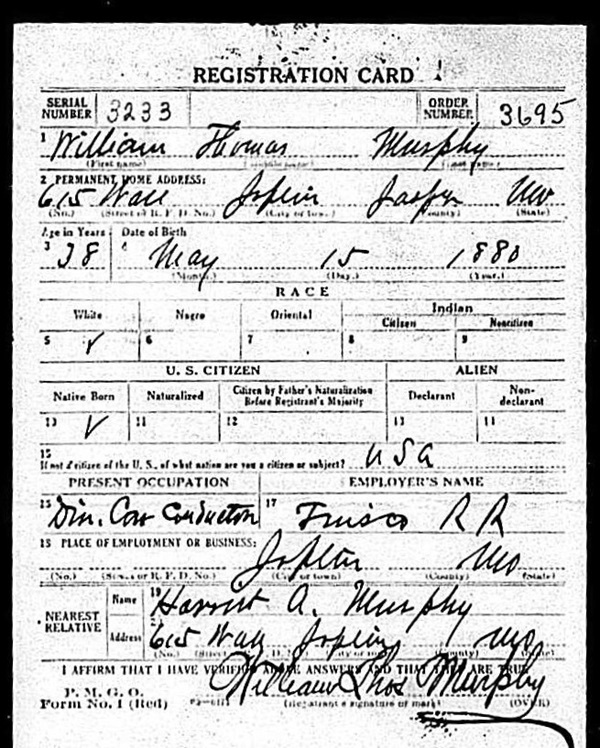 REGISTRATION CARD
SERIAL NUMBER 3233 ORDER NUMBER 3695
1 William Thomas Murphy
(First name) (Middle name) (Last name)
2 PERMANENT HOME ADDRESS:
615 Wall Joplin Jasper Mo
(No.) (Street or R. F. D. No.) (City or town) (County) (State)
Age in Years Date of Birth
3 38 4 May 15 1880
(Month.) (Day.) (Year.)
RACE
White Negro Oriental Indian
Citizen Noncitizen
5 ✓ 6 7 8 9
U. S. CITIZEN ALIEN
Native Born Naturalized Citizen by Father's Naturalization Before Registrant's Majority Declarant Non-declarant
10 ✓ 11 12 13 14
15
If not a citizen of the U. S., of what nation are you a citizen or subject? USA
PRESENT OCCUPATION EMPLOYER'S NAME
16 Conductor 17 Frisco R R
18 PLACE OF EMPLOYMENT OR BUSINESS:
Joplin Mo
(No.) (Street or R. F. D. No.) (City or town) (County) (State)
NEAREST RELATIVE Name 19 Harriet A. Murphy
Address 615 Wall Joplin Mo
I AFFIRM THAT I HAVE VERIFIED ABOVE ANSWERS AND THAT THEY ARE TRUE
P. M. G. O.
Form No. 1 (Red) William Thos Murphy
(Registrant's signature or mark) (OVER)